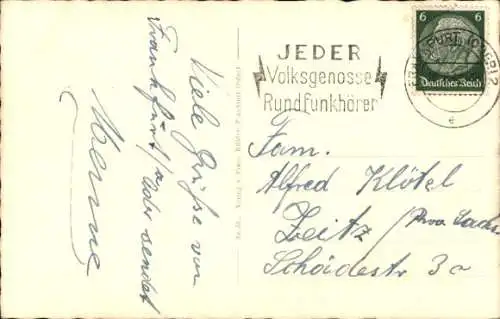 Viele Grüße von
Frankfurt/Oder sendet
JEDER
Volksgenosse
Rundfunkhörer
6 6
Deutsches Reich
e
Fam.
Alfred Klötel
Zeitz /Prov. Sachs
Schädestr 3a